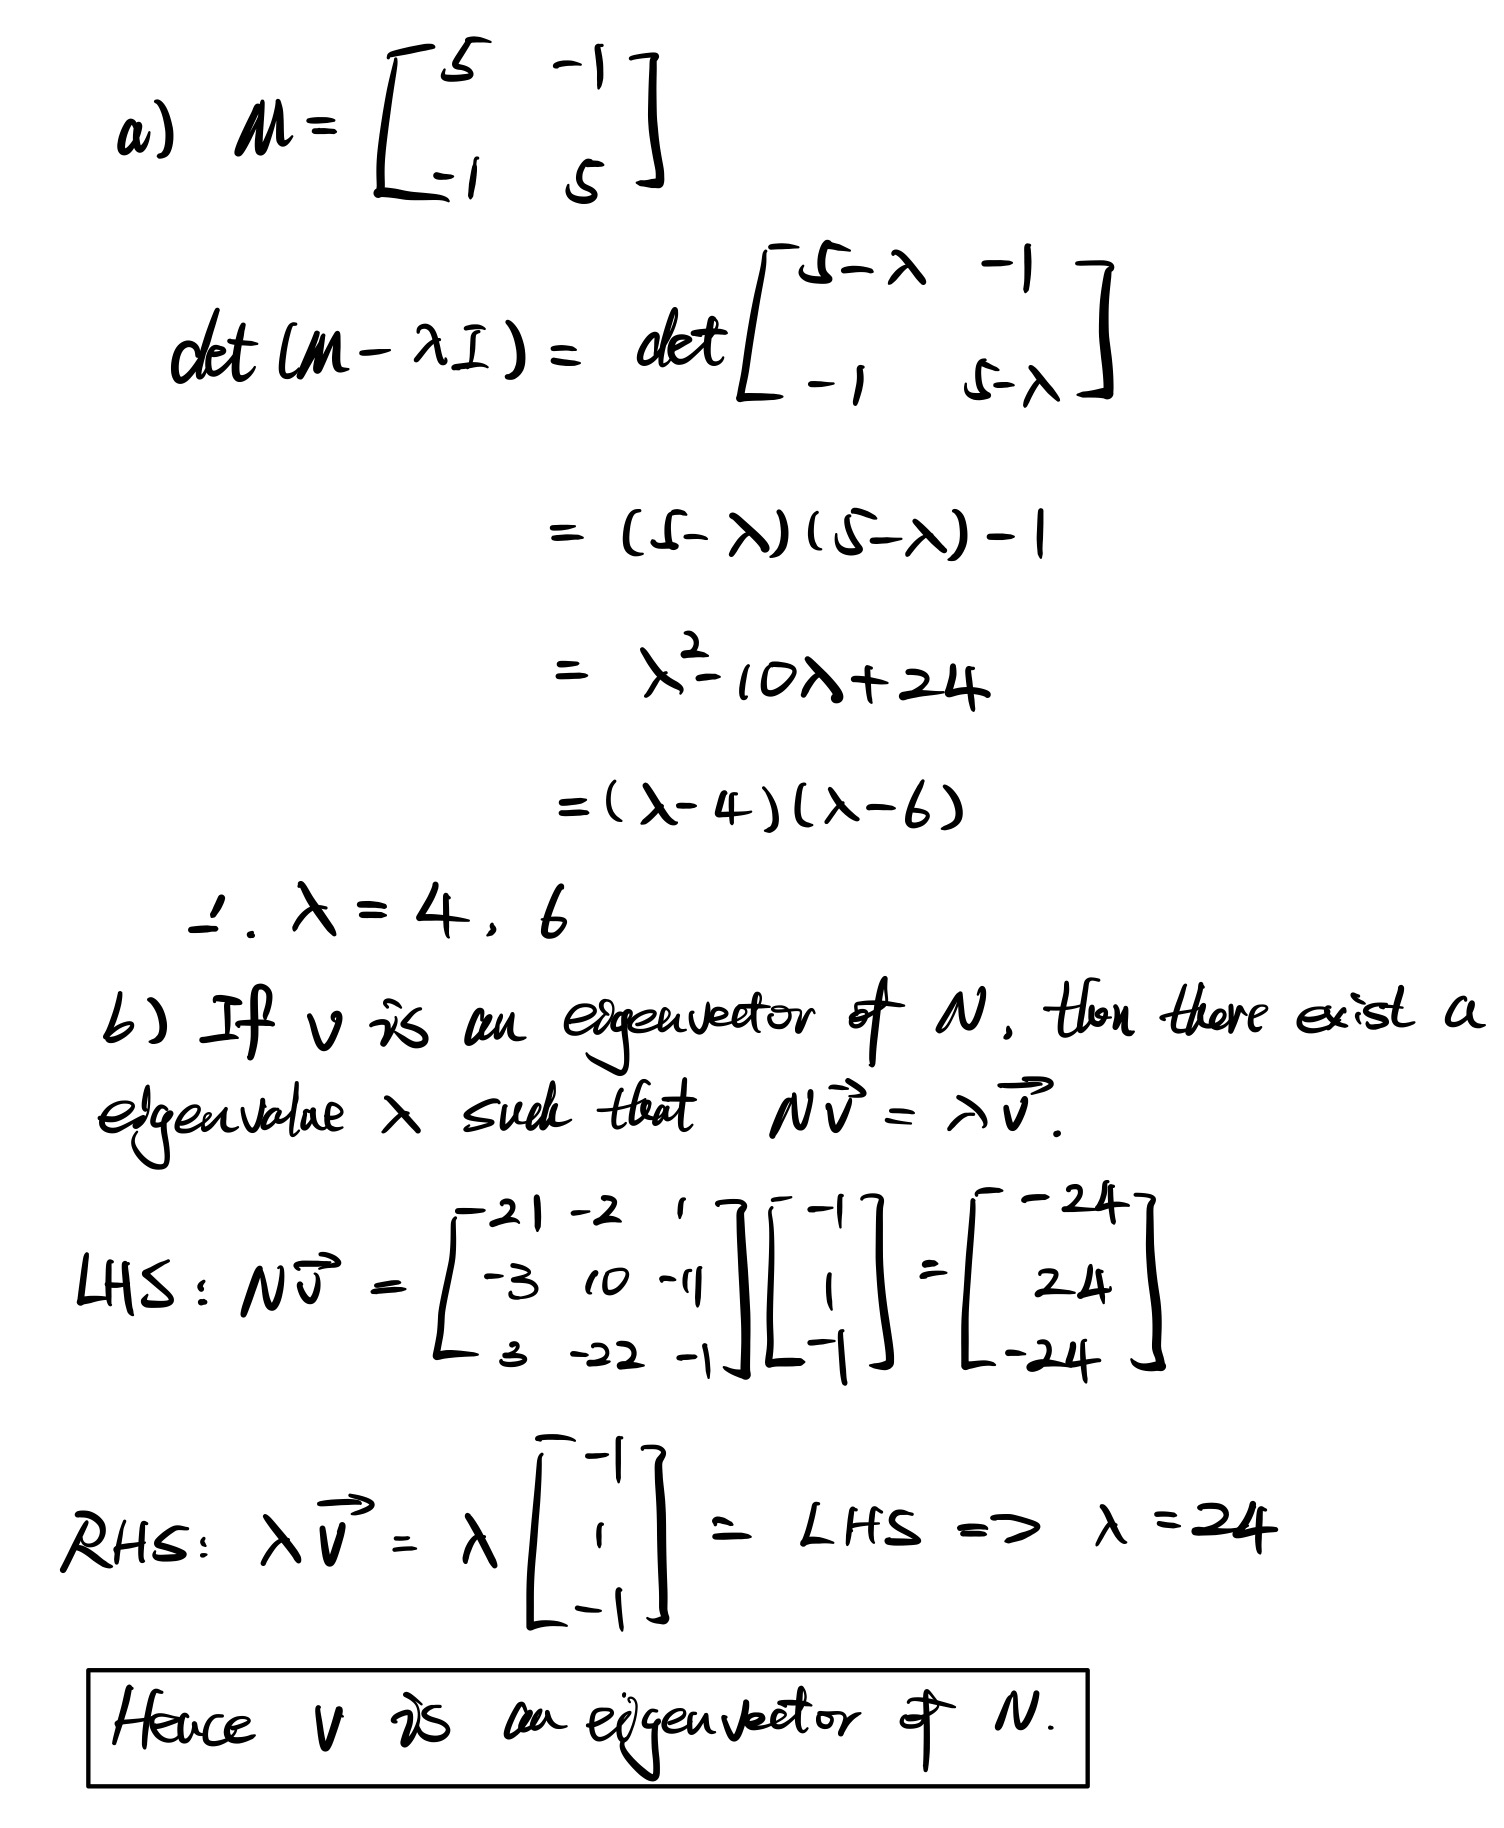 a) M = [5 -1
-1 5]
det(M - λI) = det [5-λ -1
-1 5-λ]
= (5-λ)(5-λ) - 1
= λ² - 10λ + 24
= (λ-4)(λ-6)
∴ λ = 4, 6
b) If v is an eigenvector of N, then there exist a
eigenvalue λ such that Nv⃗ = λv⃗.
LHS: Nv⃗ = [21 -2 1
-3 10 -11
3 -22 -1] [-1
1
-1] = [-24
24
-24]
RHS: λv⃗ = λ [-1
1
-1] = LHS => λ = 24
Hence v is an eigenvector of N.